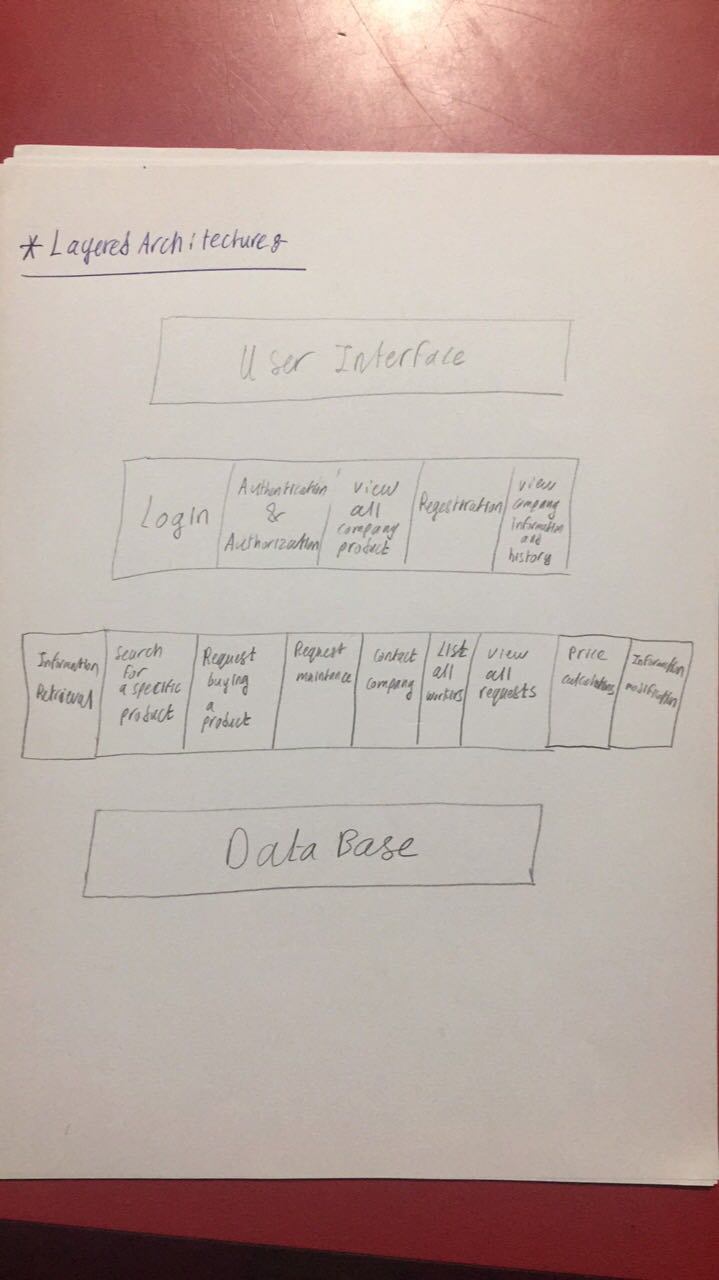 * Layered Architecture:
User Interface
Login
Authentication
&
Authorization
view
all
company
product
Regestiration
view
company
information
and
history
Information
Retrieval
Search
For
a specific
product
Request
buying
a
product
Request
maintance
contact
company
List
all
workers
view
all
requests
Price
calculations
Information
modification
Data Base